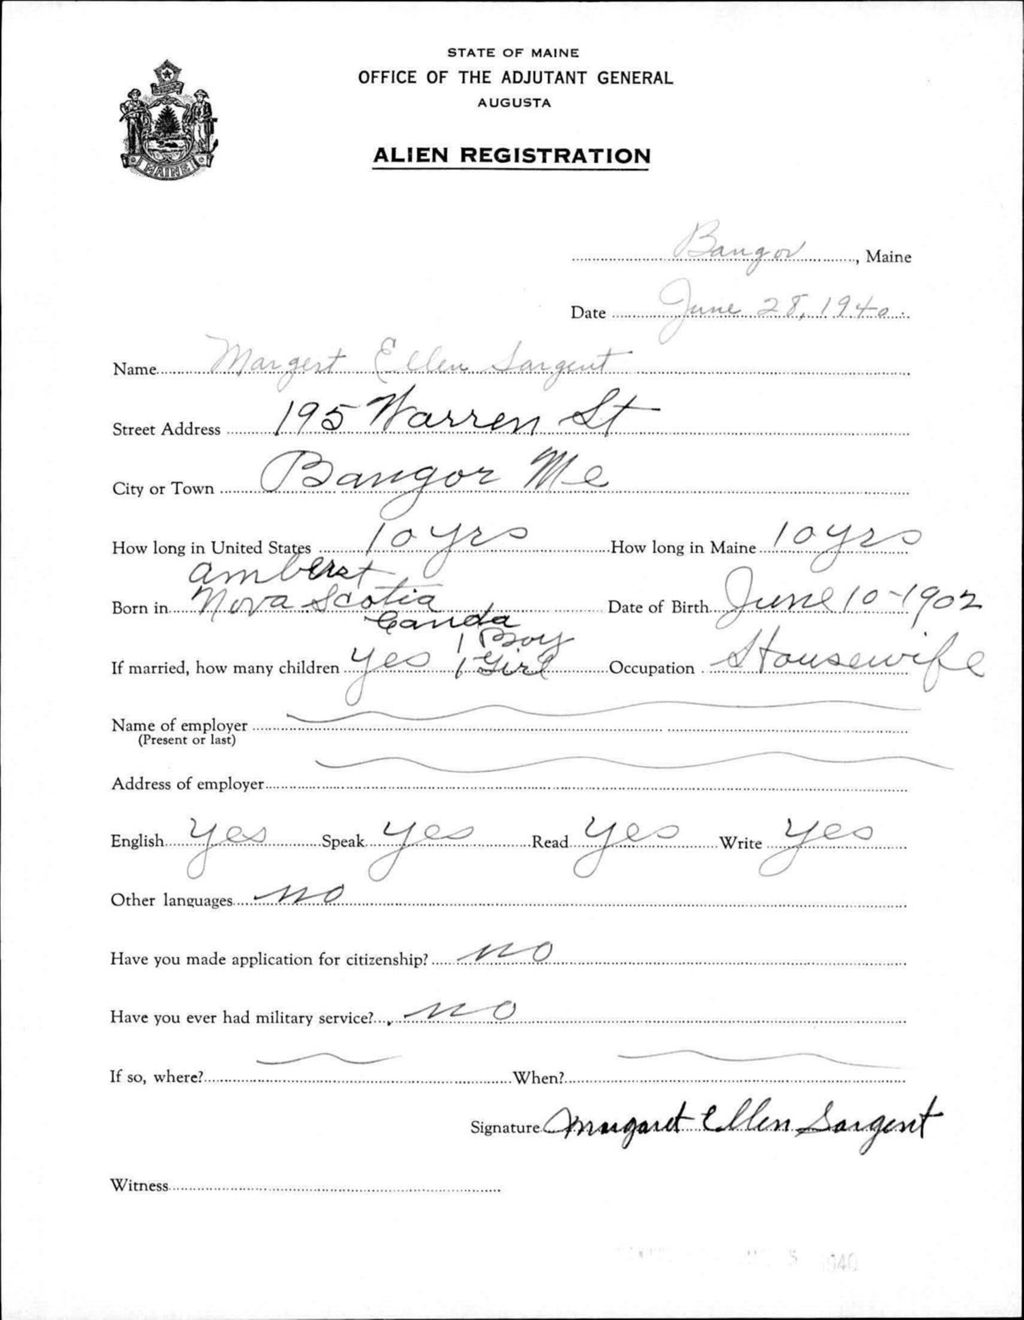 STATE OF MAINE
OFFICE OF THE ADJUTANT GENERAL
AUGUSTA
ALIEN REGISTRATION
MAINE
Bangor, Maine
Date June 28, 1940
Name Margert Ellen Sargent
Street Address 195 Warren St
City or Town Bangor Me
How long in United States 10 yrs How long in Maine 10 yrs
Amherst
Born in Nova Scotia Date of Birth June 10-1902
Canda
1 Boy
If married, how many children yes 1 Girl Occupation Housewife
Name of employer
(Present or last)
Address of employer
English yes Speak yes Read yes Write yes
Other languages no
Have you made application for citizenship? no
Have you ever had military service? no
If so, where? When?
Signature Margaret Ellen Sargent
Witness